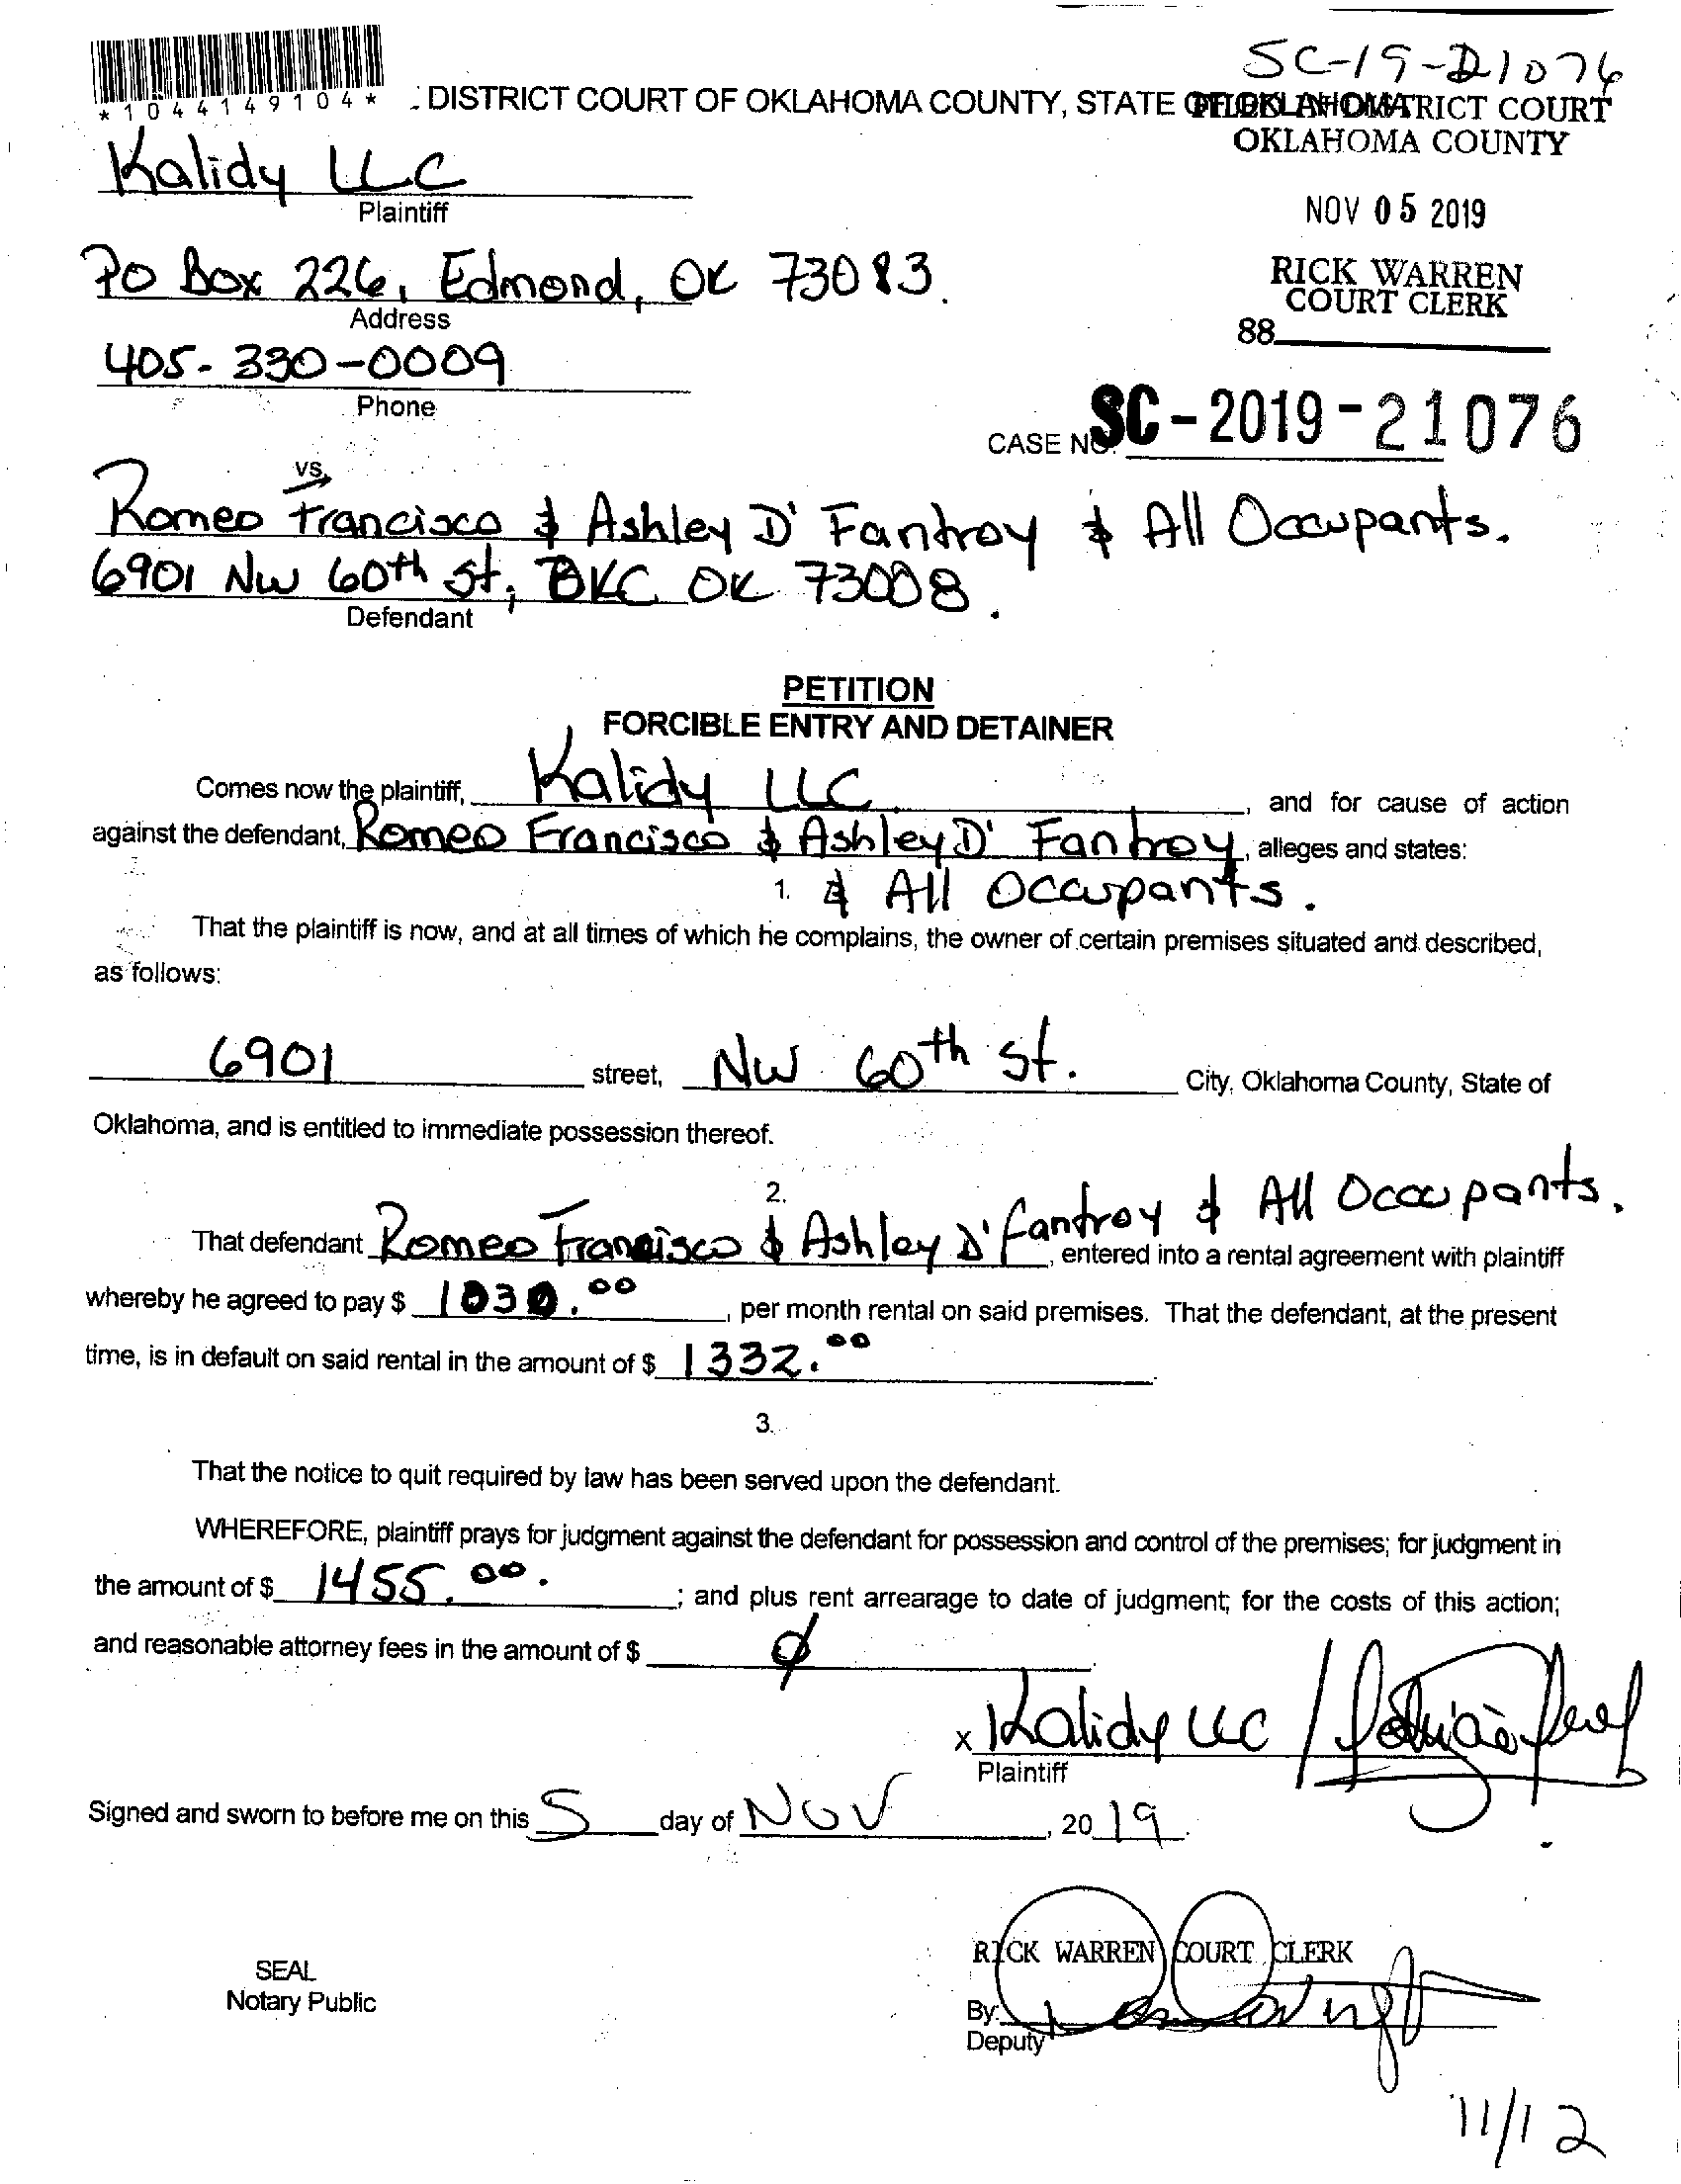 SC-19-21076
*1044149104*
DISTRICT COURT OF OKLAHOMA COUNTY, STATE OF OKLAHOMA
FILED IN DISTRICT COURT
OKLAHOMA COUNTY
Kalidy LLC
Plaintiff
NOV 05 2019
PO Box 226, Edmond, OK 73083.
Address
RICK WARREN
COURT CLERK
88
405-330-0009
Phone
CASE NO. SC-2019-21076
vs.
Romeo Francisco & Ashley D' Fantroy & All Occupants.
6901 NW 60th St, OKC OK 73008.
Defendant
PETITION
FORCIBLE ENTRY AND DETAINER
Comes now the plaintiff, Kalidy LLC, and for cause of action
against the defendant, Romeo Francisco & Ashley D' Fantroy, alleges and states:
1. & All Occupants.
That the plaintiff is now, and at all times of which he complains, the owner of certain premises situated and described,
as follows:
6901 street, NW 60th St. City, Oklahoma County, State of
Oklahoma, and is entitled to immediate possession thereof.
2.
That defendant Romeo Francisco & Ashley D' Fantroy & All Occupants., entered into a rental agreement with plaintiff
whereby he agreed to pay $ 1030.00, per month rental on said premises. That the defendant, at the present
time, is in default on said rental in the amount of $ 1332.00
3.
That the notice to quit required by law has been served upon the defendant.
WHEREFORE, plaintiff prays for judgment against the defendant for possession and control of the premises; for judgment in
the amount of $ 1455.00. ; and plus rent arrearage to date of judgment; for the costs of this action;
and reasonable attorney fees in the amount of $ ∅
x Kalidy LLC /
Plaintiff
Signed and sworn to before me on this 5 day of NOV, 2019.
SEAL
Notary Public
RICK WARREN COURT CLERK
By:
Deputy
11/12